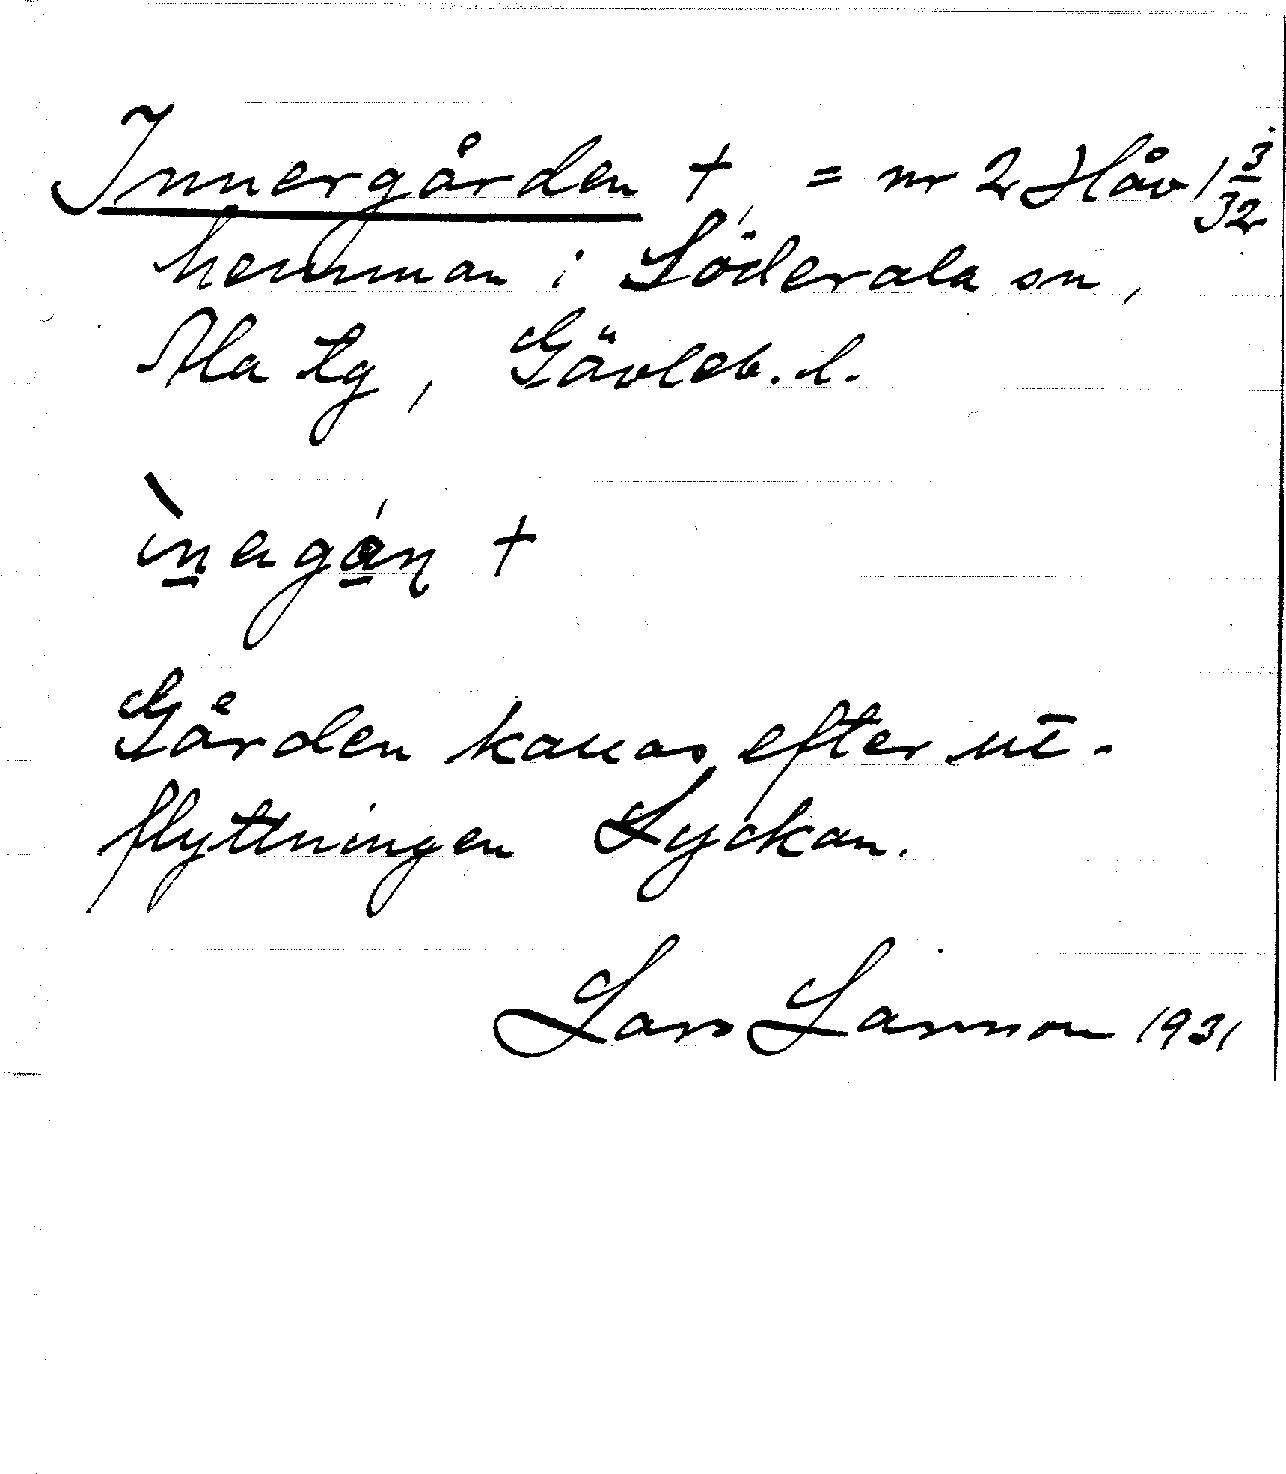 Innergården +, = nr 2 Håv 1 3/32
hemman i Söderala sn,
Ala tg, Gävleb. l.
ìnagán +
Gården kallas efter ut-
flyttningen Lyckan.
Lars Larsson 1931